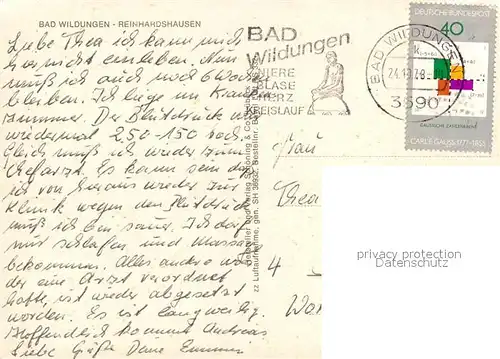 BAD WILDUNGEN - REINHARDSHAUSEN
Liebe Thea ich kann mich
gar nicht einleben. Nun
muß ich auch noch 6 Wochen
bleiben. Ich liege im Kranken
zummer. Der Blutdruck war
wiedermal 250-150 hoch.
Gleich muß ich wieder zum
Chefarzt. Es kann sein das
ich von hieraus wieder zur
Klinik wegen den Blutdruck
muß ich bin sauer. Ich darf
nur schlafen und Massa
bekommen. Alles andere wo
der eine Arzt verordnet
hatte, ist wieder abgesetzt
worden. Es ist langweilig.
Hoffendlich kommt Andreas
Liebe Grüße Deine
BAD
Wildungen
NIERE
BLASE
HERZ
KREISLAUF
BAD WILDUNGEN
3590
DEUTSCHE BUNDESPOST
40
GAUSSSCHE ZAHLENEBENE
CARL F. GAUSS 1777-1855
Hersteller und Verlag Schöning & Co
zz Luftaufnahme, gen. SH 36932. Bestellnr.
Frau
Thea
4
privacy protection
Datenschutz